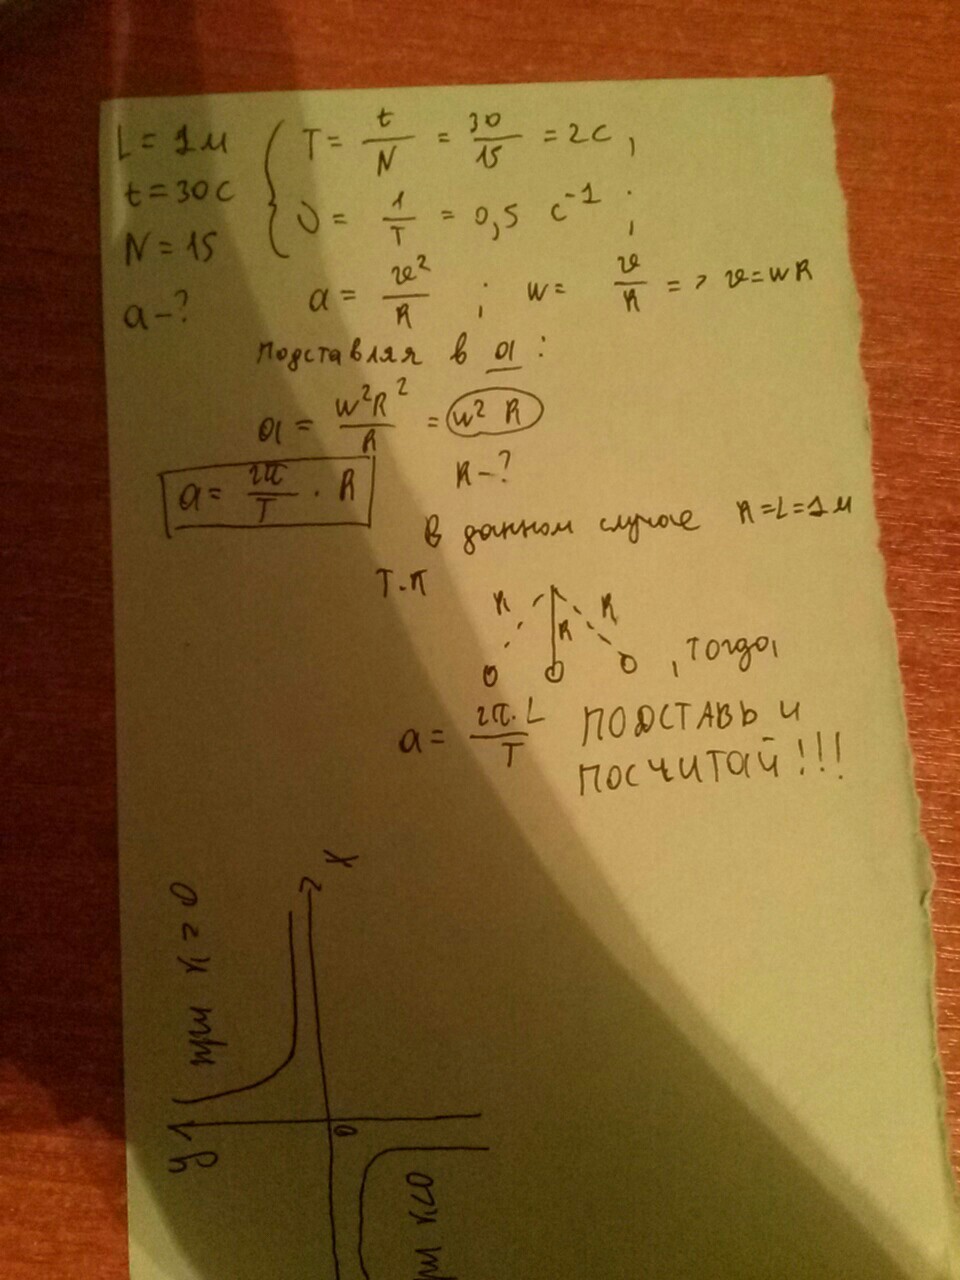 L = 1м
t = 30с
N = 15
a - ?
T = t/N = 30/15 = 2с,
υ = 1/T = 0,5 с⁻¹ ;
a = v²/R ; w = v/R => v = wR
подставляя в a :
a = w²R²/R = w² R
R - ?
a = 2π/T · R
в данном случае R = L = 1м
т.к
R R R
, тогда,
a = 2π·L/T ПОДСТАВЬ и
ПОСЧИТАЙ!!!
при к > 0
x
y
0
при к<0